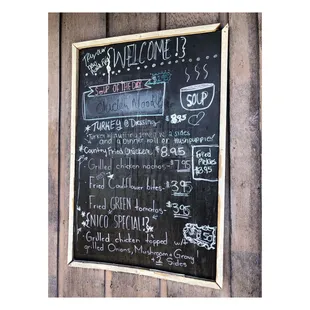 WELCOME!}
SOUP OF THE DAY
Chicken Noodle
SOUP
*TURKEY & Dressing $8.95
Turkey, stuffing, gravy w/ 2 sides
and a dinner roll or hushpuppies
*Country Fried Chicken $8.95
Fried
Pickles
$3.95
-Grilled chicken nachos $7.95
Fried Cauliflower bites- $3.95
Fried GREEN tomatos- $3.95
{NICO SPECIAL!}
-Grilled chicken topped w/
grilled Onions, Mushrooms & Gravy
Sides